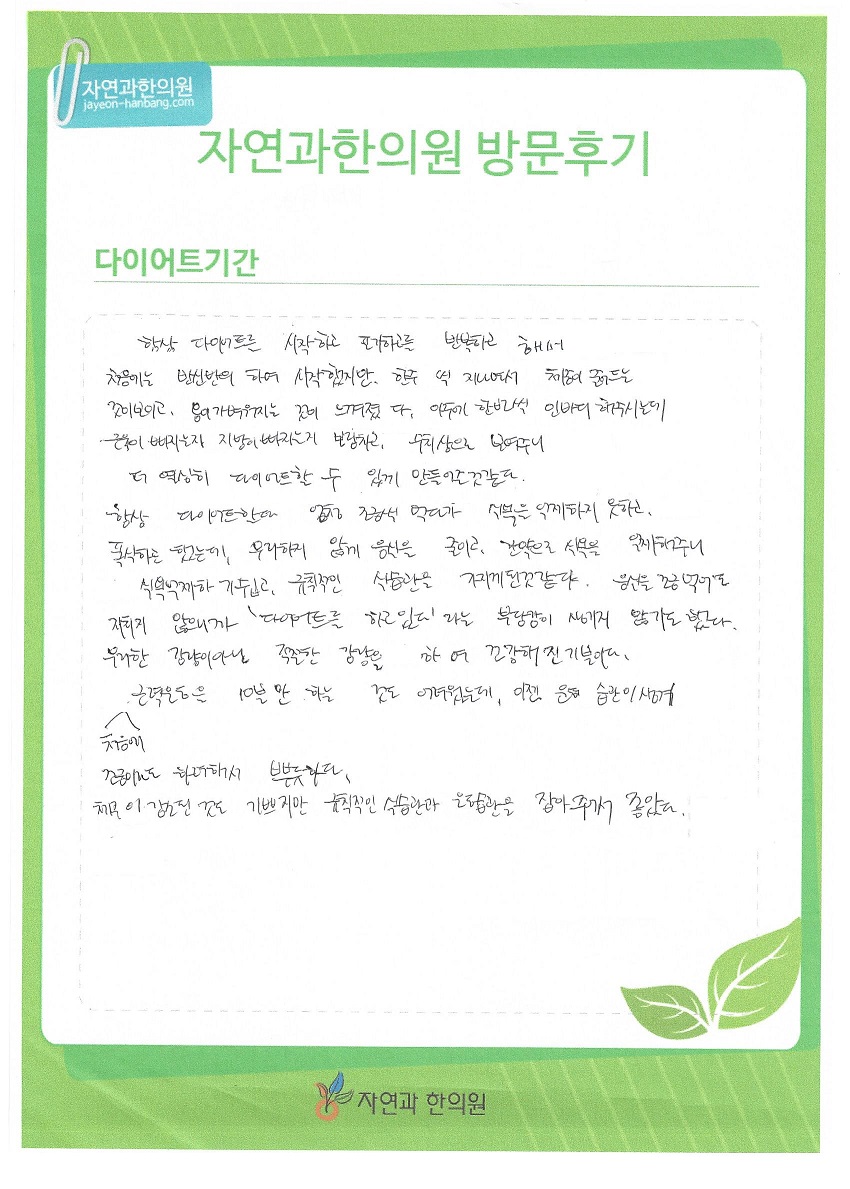 자연과한의원
jayeon-hanbang.com
자연과한의원 방문후기
다이어트기간
항상 다이어트를 시작하고 포기하고를 반복하고 해서
처음에는 반신반의 하여 시작했지만, 한주 씩 지나면서 체중이 줄어드는
것이보이고, 몸이가벼워지는 것이 느껴졌다, 이주에 한번씩 인바디 해주시는데
근육이 빠지는지 지방이 빠지는지 말하고, 보여주니
더 열심히 다이어트할 수 있게 만들어준것같다.
항상 다이어트한다 조금씩 먹다가 식욕을 억제하지 못하고,
폭식하곤 했는데, 무리하지 않게 음식을 줄이고, 한약으로 식욕을 억제해주니
식욕억제하기쉽고, 규칙적인 식습관을 가지게된것같다. 음식을 조금 먹어도
않으니까 '다이어트를 하고있다' 라는 부담감이 생기지 않기도 했다.
무리한 감량이아닌 적절한 감량을 하여 건강해진기분이다.
근력운동은 10분만 하는 것도 어려웠는데, 이젠 운동 습관이생겨
처음에
조금이라도 하려해서 뿌듯하다.
체중이 감소된 것도 기쁘지만 규칙적인 식습관과 운동습관을 잡아주셔서 좋았다.
자연과 한의원